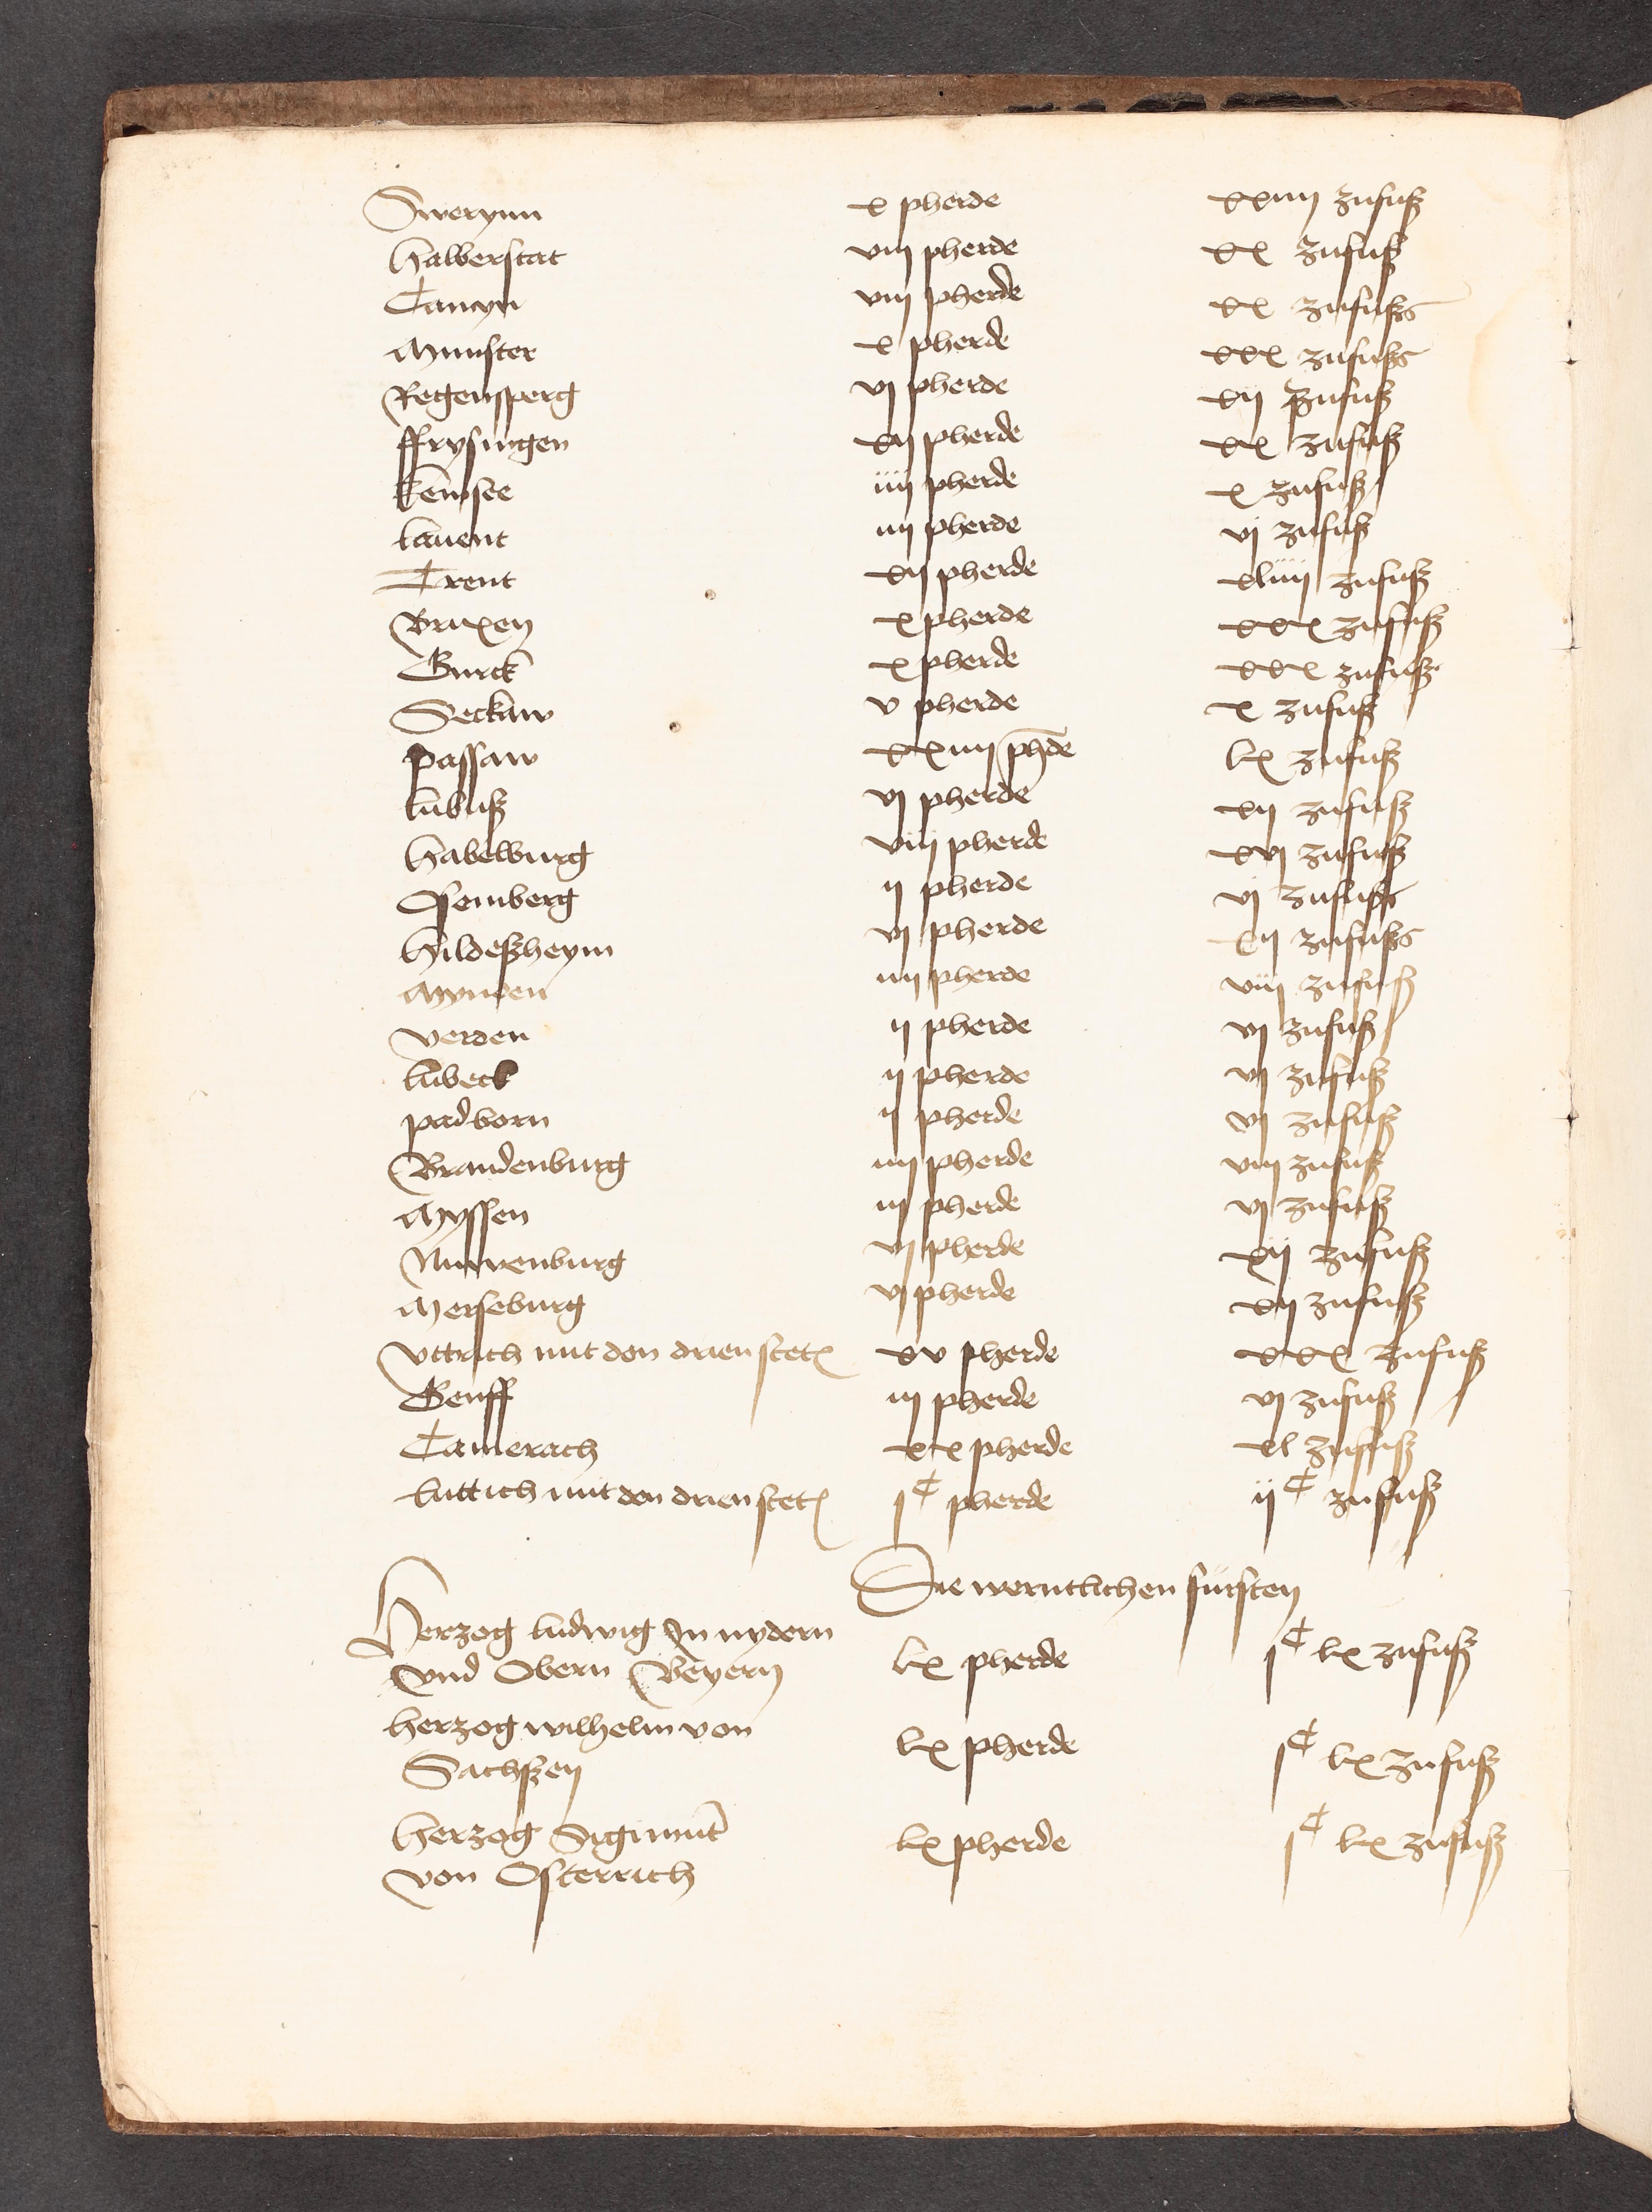 Swerynn x pherde xxiiij zufuß
Halberstat viij pherde xx zufuß
Camyn viij pherde xx zufuß
Munster x pherde xxx zufuß
Regensperg vj pherde xij zufuß
ffrysingen xij pherde xx zufuß
Kemsee iiij pherde x zufuß
lauent iiij pherde vj zufuß
Trent xij pherde xliiij zufuß
Brixen x pherde xxx zufuß
Gurck x pherde xxx zufuß
Seckaw v pherde x zufuß
passaw xxiiij phde lx zufuß
lubuß vj pherde xij zufuß
Habelburg viij pherde xvj zufuß
Osemberg ij pherde vj zufuß
Hildeßheym vj pherde xij zufuß
Mynden iiij pherde viij zufuß
verden ij pherde vj zufuß
lubeck ij pherde vj zufuß
padborn ij pherde vj zufuß
Brandenburg iiij pherde viij zufuß
Myssen iij pherde vj zufuß
Nuwenburg vj pherde xij zufuß
Merseburg vj pherde xij zufuß
Vttrich mit den drien stet xv pherde xxx zufuß
Genff iij pherde vj zufuß
Camerach xx pherde xl zufuß
luttich mit den drien stet jC pherde ijC zufuß
Die werntlichen fürsten
Herzog ludwig In nydern
vnd Obern Beyern lx pherde jC lx zufuß
herzog wilhelm von
Sachßen lx pherde jC lx zufuß
herzog Sigmunt
von Osterrich lx pherde jC lx zufuß